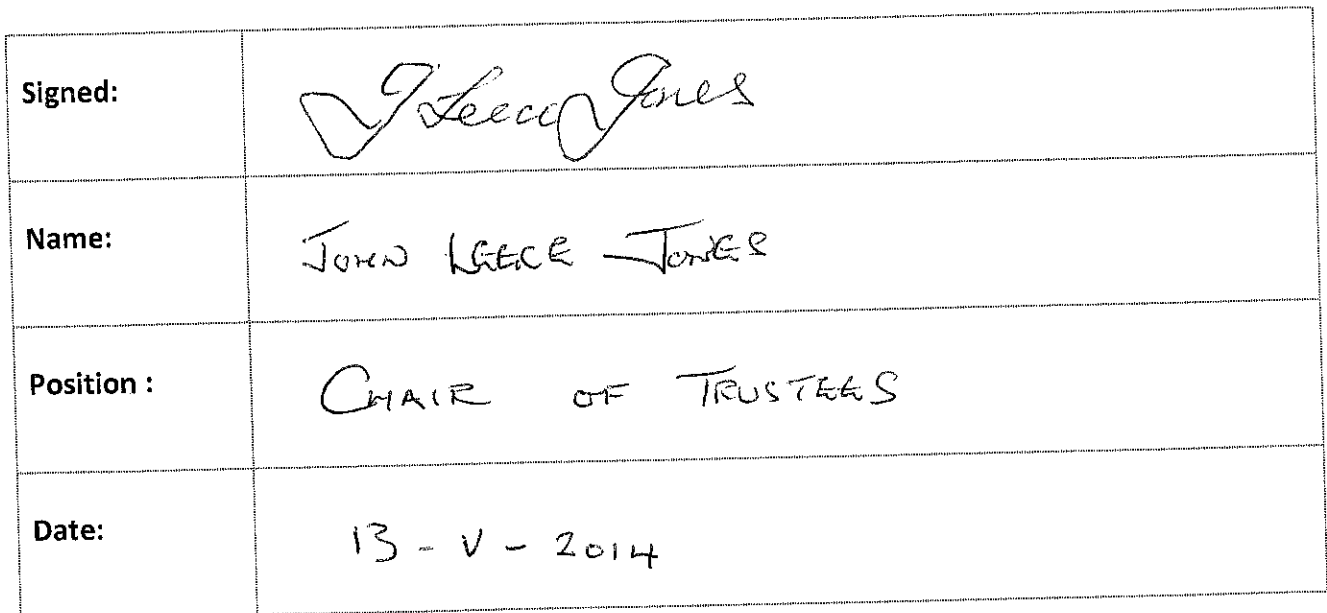 Signed: J Leece Jones
Name: JOHN LEECE JONES
Position : CHAIR OF TRUSTEES
Date: 13 - V - 2014